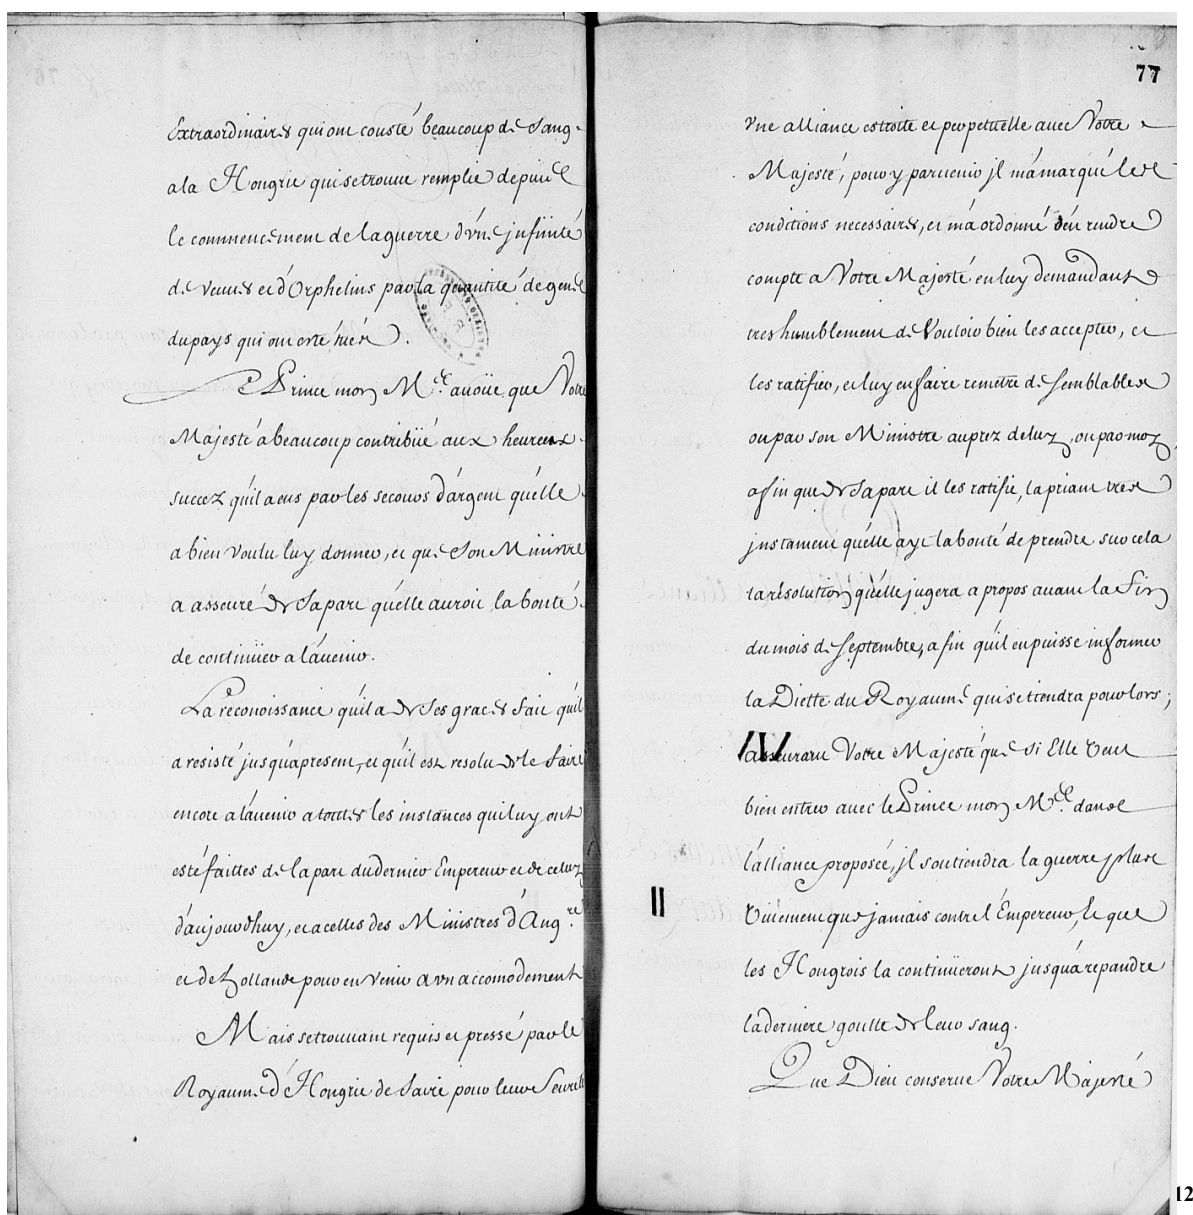 Extraordinaires qui ont cousté beaucoup de sang
a la Hongrie qui se trouve remplie depuis
le commencement de la guerre d'vne jnfinité
de veuves et d'Orphelins par la quantité de gens
du pays qui ont esté tüés.
Le Prince mon M.e avoüe que Votre
Majesté a beaucoup contribüé aux heureux
succez qu'il a eus par les secours d'argent qu'elle
a bien voulu luy donner, et que Son Ministre
a asseuré de sa part qu'elle auroit la bonté
de continüer a l'avenir.
La reconoissance qu'il a de ses graces fait qu'il
a resisté jusqu'apresent, et qu'il est resolu de le faire
encore a l'avenir a toutes les instances qui luy ont
esté faittes de la part du dernier Empereur et de celuy
d'aujourdhuy, et a celles des Ministres d'Ang.re
et de hollande pour en venir a vn accomodement
Mais se trouvant requis et pressé par le
Royaume d'Hongrie de faire pour leur seureté
77
vne alliance estroite et perpetuelle avec Votre
Majesté, pour y parvenir jl m'a marqué les
conditions necessaires, et m'a ordonné d'en rendre
compte a Votre Majesté en luy demandant
tres humblement de vouloir bien les accepter, et
les ratifier, et luy en faire remetre de semblables
ou par son Ministre auprez de luy, ou par moy,
afin que de sa part il les ratifie, la priant tres
jnstament qu'elle aye la bonté de prendre sur cela
la résolution qu'elle jugera a propos avant la fin
du mois de septembre, afin qu'il en puisse informer
la Diette du Royaume qui se tiendra pour lors;
asseurant Votre Majesté que si Elle veut
bien entrer avec le Prince mon M.e dans
l'alliance proposée, jl soutiendra la guerre plus
vivement que jamais contre l'Empereur, et que
les Hongrois la continüeront jusqu'a repandre
la derniere goutte de leur sang.
Que Dieu conserve Votre Majesté
12